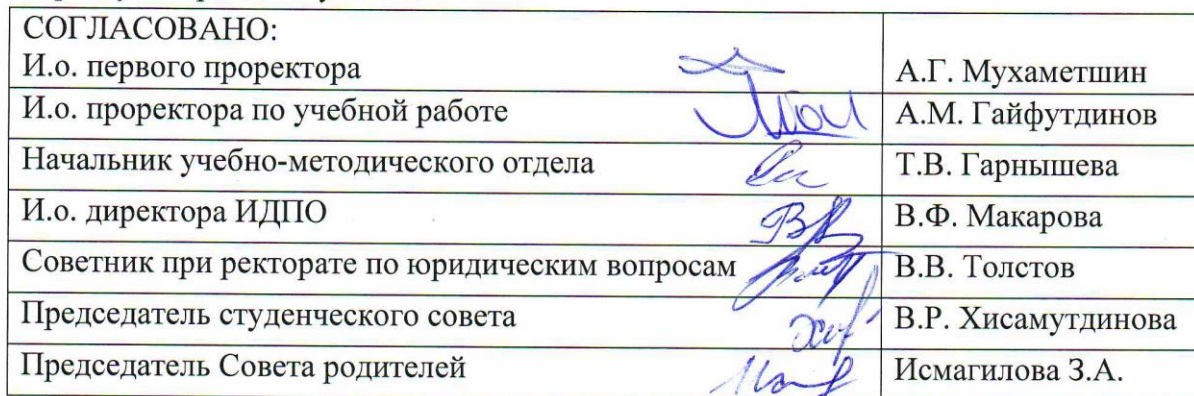 СОГЛАСОВАНО:
И.о. первого проректора А.Г. Мухаметшин
И.о. проректора по учебной работе А.М. Гайфутдинов
Начальник учебно-методического отдела Т.В. Гарнышева
И.о. директора ИДПО В.Ф. Макарова
Советник при ректорате по юридическим вопросам В.В. Толстов
Председатель студенческого совета В.Р. Хисамутдинова
Председатель Совета родителей Исмагилова З.А.